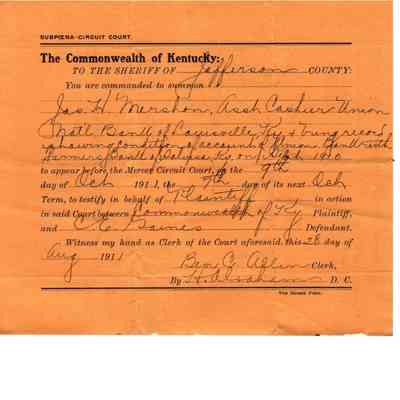 SUBPŒNA-CIRCUIT COURT.
The Commonwealth of Kentucky:
TO THE SHERIFF OF Jefferson COUNTY:
You are commanded to summon
Jas H. Mershon, Asst Cashier Union
Natl. Bank of Louisville, Ky, & bring record
showing condition of account of
Farmers Bank of Ky, on 1910
to appear before the Mercer Circuit Court, on the 9th
day of Oct 1911, the 7th day of its next Oct
Term, to testify in behalf of Plaintiff in action
in said Court between Commonwealth of Ky Plaintiff,
and C. C. Baines Defendant.
Witness my hand as Clerk of the Court aforesaid, this 28 day of
Aug 1911
Ben C. Allin Clerk,
By D. C.